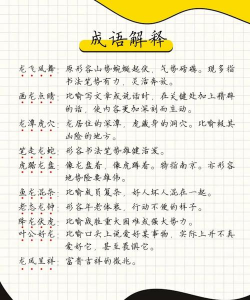 成语解释
龙飞凤舞：原形容山势蜿蜒起伏，气势磅礴。现多指
书法笔势有力，灵活奔放。
画龙点睛：比喻写文章或说话时，在关键处加上精辟
的话，使内容更加深刻而生动。
龙潭虎穴：龙居住的深潭，虎藏身的洞穴。比喻极其
凶险的地方。
笔走龙蛇：形容书法笔势雄健活泼。
虎踞龙盘：像龙盘着，像虎蹲着。特指南京。亦形容
地势险要雄伟。
鱼龙混杂：比喻成员复杂，好人坏人混在一起。
老态龙钟：形容年老体衰，行动不便的样子。
降龙伏虎：比喻战胜重大困难或强大势力。
叶公好龙：比喻口头上说爱好某事物，实际上并不真
爱好它，甚至畏惧它。
龙凤呈祥：富贵吉祥的征兆。